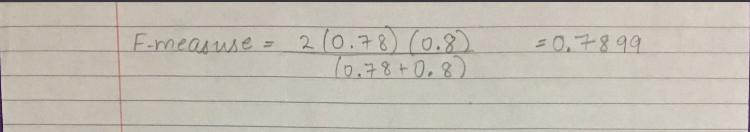 F-measure = 2(0.78)(0.8) = 0.7899
(0.78+0.8)